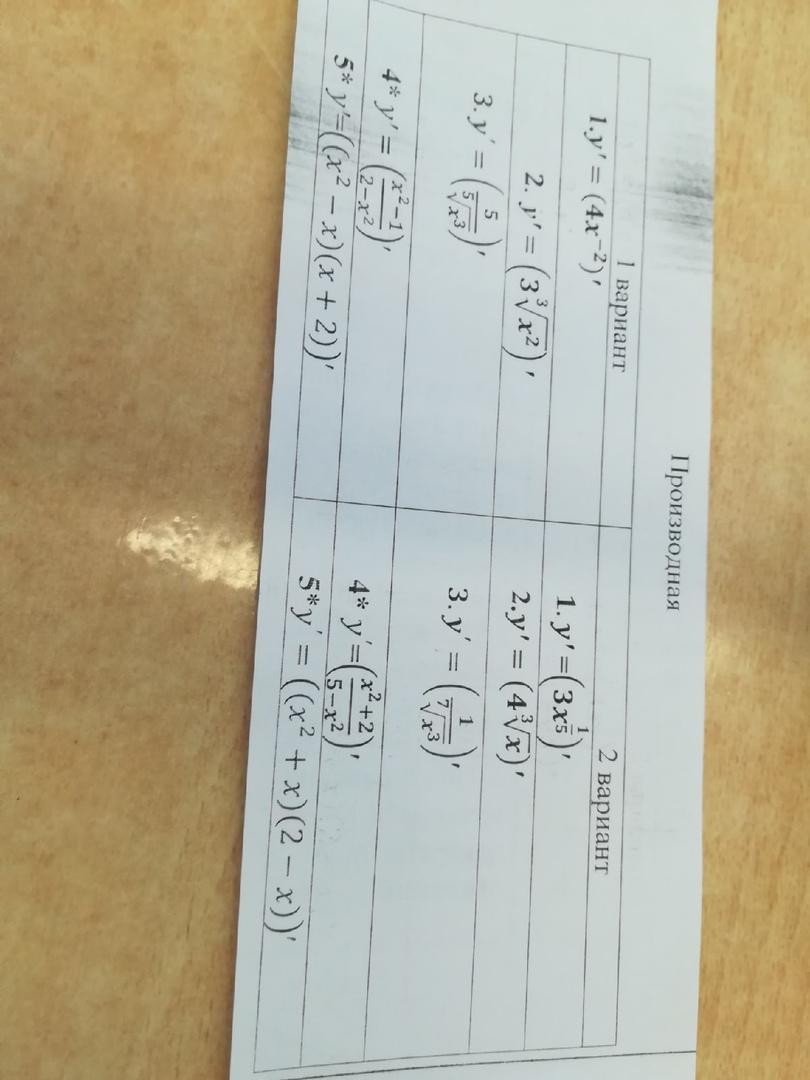 Производная
1 вариант
2 вариант
1.y′ = (4x⁻²)′
1.y′ =(3x^(1/5))′
2. y′ = (3∛x²)′
2.y′ = (4∛x)′
3. y′ = (5/⁵√x³)′
3. y′ = (1/⁷√x³)′
4* y′ = (x²−1/2−x²)′
4* y′=(x²+2/5−x²)′
5* y′=((x² − x)(x + 2))′
5*y′ = ((x² + x)(2 − x))′